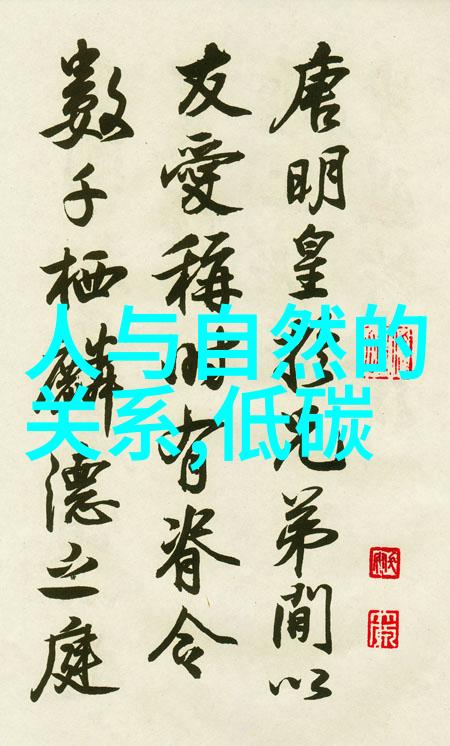 唐明皇於兄弟間以
友愛稱時有脊令
數千栖麟德之庭
人与自然的
关系,低碳